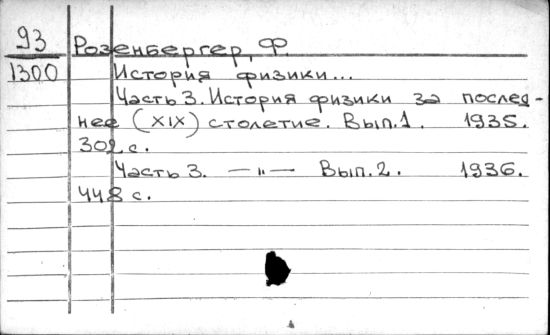 93 Розенбергер, Ф.
1300 История физики...
Часть 3. История физики за послед-
нее (XIX) столетие. Вып.1. 1935.
302 с.
Часть 3. —"— Вып.2. 1936.
448 с.